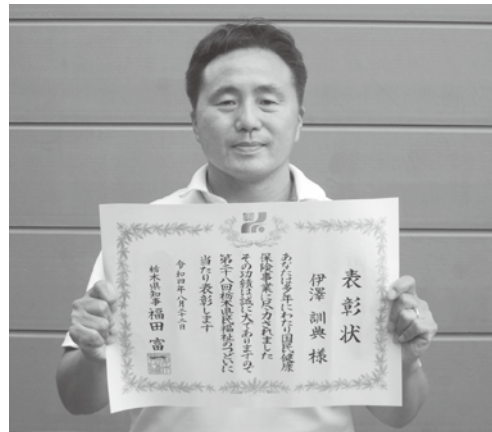 表彰状
伊澤訓典様
あなたは多年にわたり国民健康
保険事業に尽力されました
その功績は誠に大でありますので
第三十八回栃木県民福祉のつどいに
当たり表彰します
令和四年八月二十二日
栃木県知事 福田富